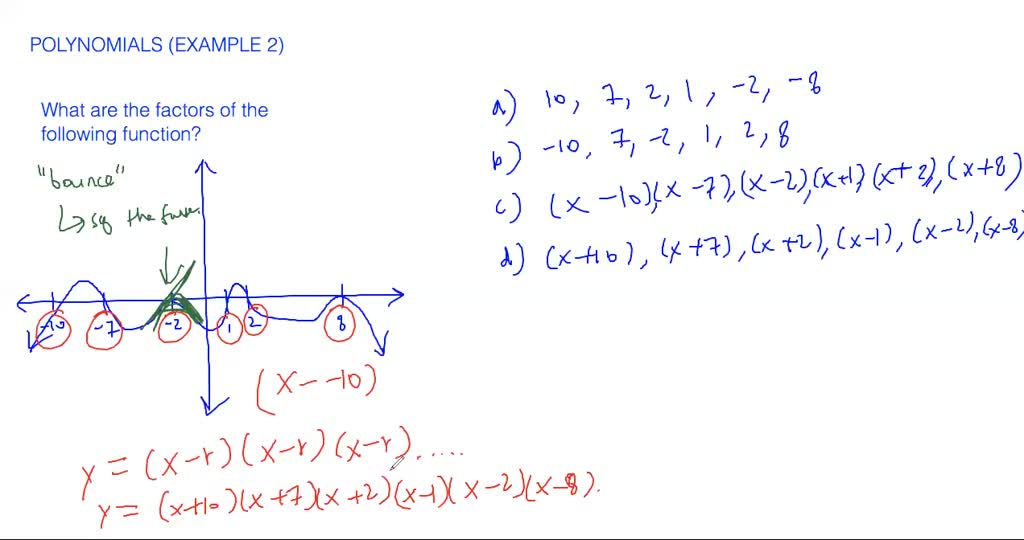 POLYNOMIALS (EXAMPLE 2)
What are the factors of the
following function?
"bounce"
↳ sq the
-10 -7 -2 1 2 8
(x--10)
y = (x-r)(x-r)(x-r).....
y = (x+10)(x+7)(x+2)(x-1)(x-2)(x-8).
a) 10, 7, 2, 1, -2, -8
b) -10, 7, -2, 1, 2, 8
c) (x-10),(x-7),(x-2),(x+1),(x+2),(x+8)
d) (x+10), (x+7), (x+2), (x-1), (x-2), (x-8)